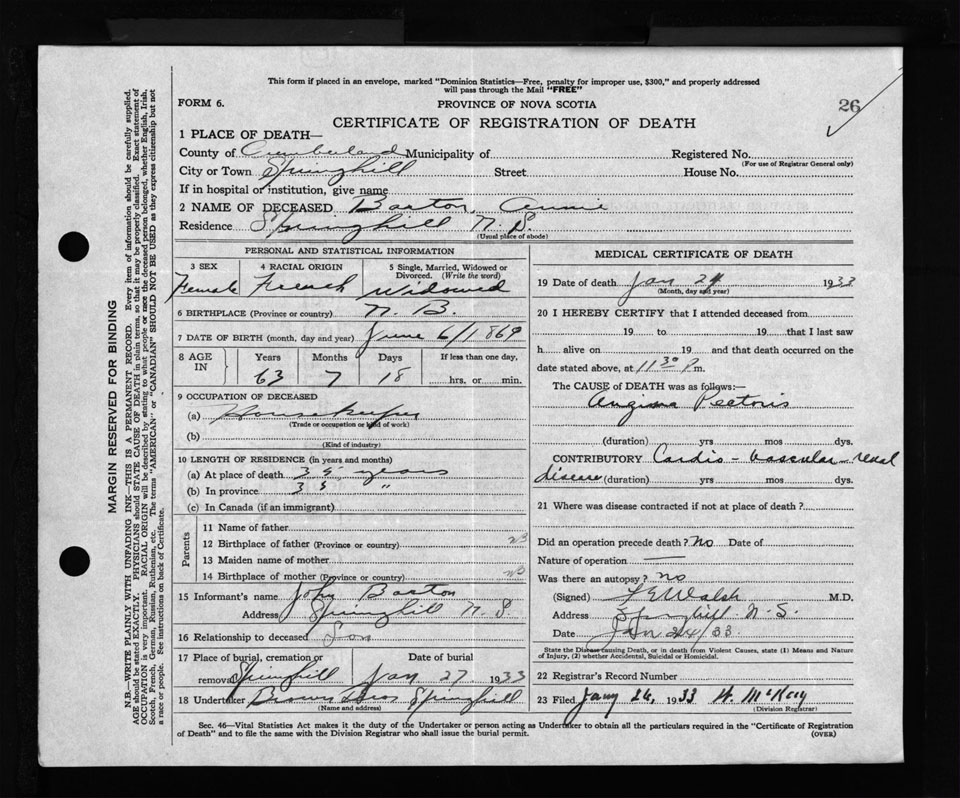 This form if placed in an envelope, marked "Dominion Statistics—Free, penalty for improper use, $300," and properly addressed
will pass through the Mail "FREE"
FORM 6.
PROVINCE OF NOVA SCOTIA
26
CERTIFICATE OF REGISTRATION OF DEATH
1 PLACE OF DEATH—
County of Cumberland Municipality of Registered No.
(For use of Registrar General only)
City or Town Springhill Street House No.
If in hospital or institution, give name
2 NAME OF DECEASED Barton, Annie
Residence Springhill N. S.
(Usual place of abode)
PERSONAL AND STATISTICAL INFORMATION
3 SEX 4 RACIAL ORIGIN 5 Single, Married, Widowed or
Divorced. (Write the word)
Female French Widowed
6 BIRTHPLACE (Province or country) N. B.
7 DATE OF BIRTH (month, day and year) June 6/1869
8 AGE IN Years Months Days If less than one day,
63 7 18 hrs. or min.
9 OCCUPATION OF DECEASED
(a) Housekeeper
(Trade or occupation or kind of work)
(b)
(Kind of industry)
10 LENGTH OF RESIDENCE (in years and months)
(a) At place of death 35 years
(b) In province 35 "
(c) In Canada (if an immigrant)
Parents
11 Name of father
12 Birthplace of father (Province or country) NB
13 Maiden name of mother
14 Birthplace of mother (Province or country) NB
15 Informant's name John Barton
Address Springhill N. S.
16 Relationship to deceased Son
17 Place of burial, cremation or Date of burial
removal Springhill Jan 27 1933
18 Undertaker Brown Bros Springhill
(Name and address)
MEDICAL CERTIFICATE OF DEATH
19 Date of death Jan 24 1933
(Month, day and year)
20 I HEREBY CERTIFY that I attended deceased from
19 to 19 that I last saw
h alive on 19 and that death occurred on the
date stated above, at 11 30 P m.
The CAUSE of DEATH was as follows:—
Angina Pectoris
(duration) yrs mos dys.
CONTRIBUTORY Cardio-vascular-renal
disease (duration) yrs mos dys.
21 Where was disease contracted if not at place of death?
Did an operation precede death? No Date of
Nature of operation —
Was there an autopsy? no
(Signed) Walsh M.D.
Address Springhill N. S.
Date Jan 24/33.
State the Disease causing Death, or in death from Violent Causes, state (1) Means and Nature
of Injury, (2) whether Accidental, Suicidal or Homicidal.
22 Registrar's Record Number
23 Filed Jany 26, 1933
(Division Registrar)
Sec. 46—Vital Statistics Act makes it the duty of the Undertaker or person acting as Undertaker to obtain all the particulars required in the "Certificate of Registration
of Death" and to file the same with the Division Registrar who shall issue the burial permit. (OVER)
MARGIN RESERVED FOR BINDING
N.B.—WRITE PLAINLY WITH UNFADING INK—THIS IS A PERMANENT RECORD. Every item of information should be carefully supplied.
AGE should be stated EXACTLY. PHYSICIANS should STATE CAUSE OF DEATH in plain terms, so that it may be properly classified. Exact statement of
OCCUPATION is very important. RACIAL ORIGIN will be described by stating to what people or race the deceased person belonged, whether English, Irish,
Scotch, French, German, Russian, Ruthenian, etc. The terms "AMERICAN" or "CANADIAN" SHOULD NOT BE USED as they express citizenship but not
a race or people. See instructions on back of Certificate.